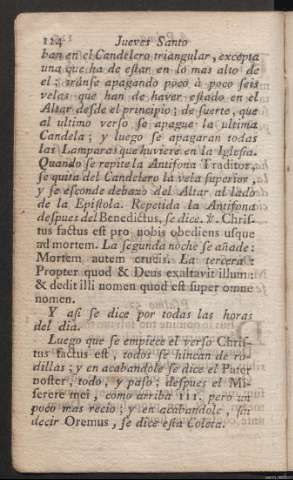 124 Jueves Santo
ban en el Candelero triangular, excepta
una que ha de estar en lo mas alto de
el: irànse apagando poco à poco seis
velas que han de haver estado en el
Altar desde el principio; de suerte, que
al ultimo verso se apague la ultima
Candela; y luego se apagaran todas
las Lamparas que huviere en la Iglesia.
Quando se repite la Antifona Traditor,
se quita del Candelero la vela superior,
y se esconde debaxo del Altar al lado
de la Epistola. Repetida la Antifona
despues del Benedictus, se dice. ℣. Chris-
tus factus est pro nobis obediens usque
ad mortem. La segunda noche se añade:
Mortem autem crucis. La tercera:
Propter quod & Deus exaltavit illum:
& dedit illi nomen quod est super omne
nomen.
Y asi se dice por todas las horas
del dia.
Luego que se empiece el verso Chris-
tus factus est, todos se hincan de ro-
dillas; y en acabandole se dice el Pater
noster, todo, y paso; despues el Mi-
serere mei, como arriba III. pero un
poco mas recio; y en acabandole, sin
decir Oremus, se dice esta Coleta.